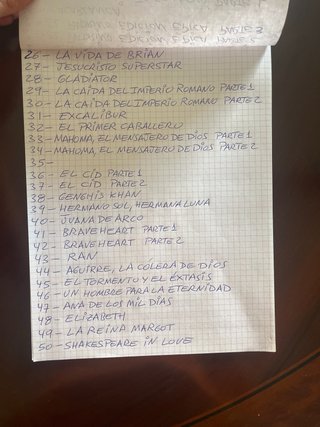 26- LA VIDA DE BRIAN
27- JESUCRISTO SUPERSTAR
28- GLADIATOR
29- LA CAIDA DEL IMPERIO ROMANO PARTE 1
30- LA CAIDA DEL IMPERIO ROMANO PARTE 2
31- EXCALIBUR
32- EL PRIMER CABALLERO
33- MAHOMA, EL MENSAJERO DE DIOS PARTE 1
34- MAHOMA, EL MENSAJERO DE DIOS PARTE 2
35-
36- EL CID PARTE 1
37- EL CID PARTE 2
38- GENGHIS KHAN
39- HERMANO SOL, HERMANA LUNA
40- JUANA DE ARCO
41- BRAVEHEART PARTE 1
42- BRAVEHEART PARTE 2
43- RAN
44- AGUIRRE, LA CÓLERA DE DIOS
45- EL TORMENTO Y EL ÉXTASIS
46- UN HOMBRE PARA LA ETERNIDAD
47- ANA DE LOS MIL DÍAS
48- ELIZABETH
49- LA REINA MARGOT
50- SHAKESPEARE IN LOVE